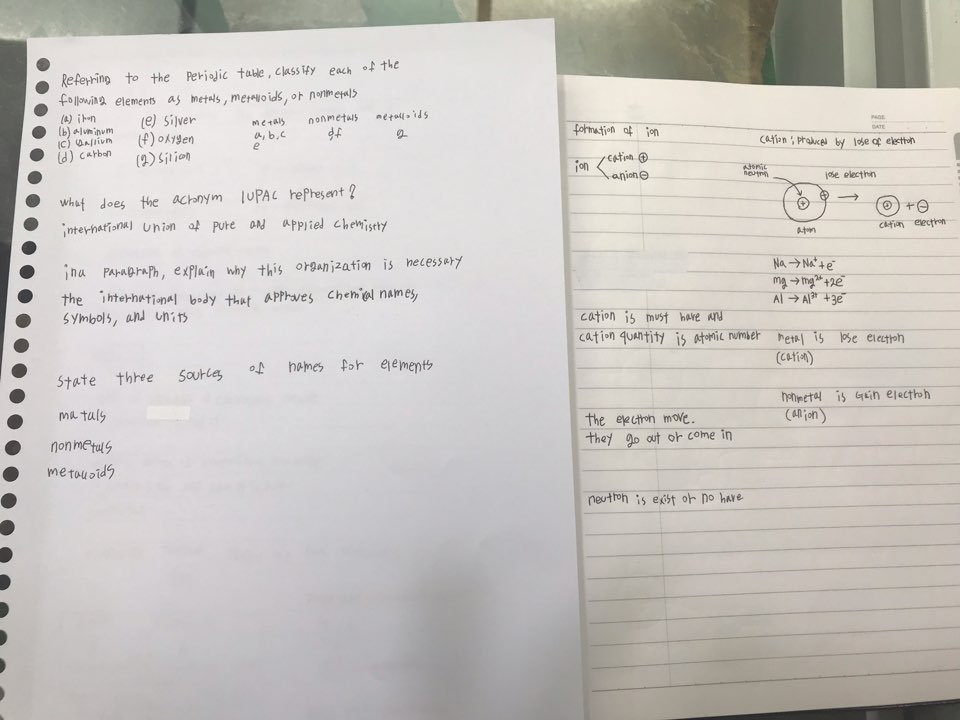 Referring to the Periodic table, classify each of the
following elements as metals, metalloids, or nonmetals
(a) iron (e) silver metals nonmetals metalloids
(b) aluminum (f) oxygen a, b, c df g
(c) Gallium (g) silion e
(d) carbon
what does the acronym IUPAC represent?
international Union of pure and applied chemistry
ina paragraph, explain why this organization is necessary
the international body that approves chemical names,
symbols, and units
state three sources of names for elements
matals
nonmetals
metalloids
PAGE
DATE
formation of ion
cation ; produced by lose of electron
ion cation ⊕
anion ⊖
atomic
neutron
lose electron
+ + → + + ⊖
atom cation electron
Na → Na⁺ + e⁻
mg → mg²⁺ + 2e⁻
Al → Al³⁺ + 3e⁻
cation is must have and
cation quantity is atomic number metal is lose electron
(cation)
nonmetal is Gain electron
(anion)
the electron move.
they go out or come in
neutron is exist or no have